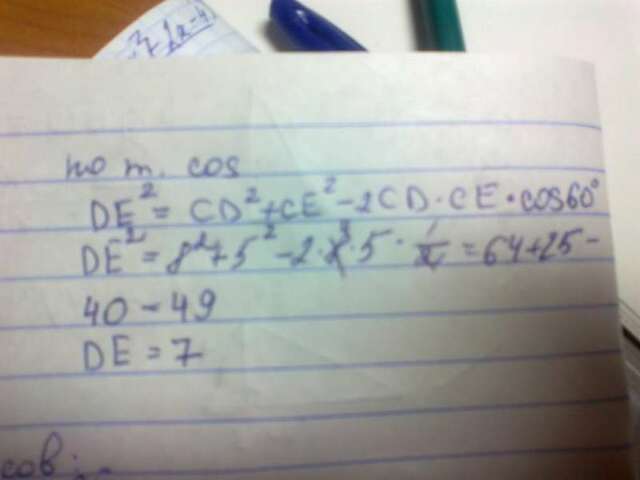 по т. cos
DE² = CD² + CE² - 2CD · CE · cos60°
DE² = 8² + 5² - 2 · 8 · 5 · 1/2 = 64 + 25 -
40 = 49
DE = 7
сов